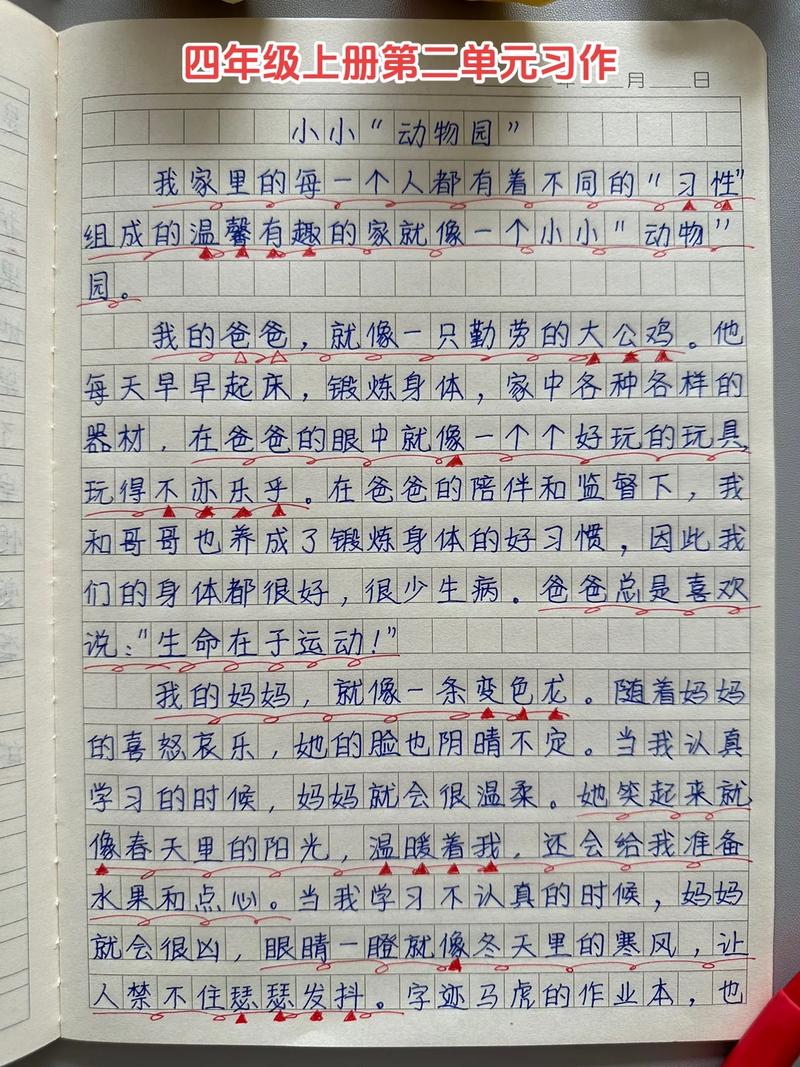 四年级上册第二单元习作
年 月 日
小小“动物园”
我家里的每一个人都有着不同的“习性”
组成的温馨有趣的家就像一个小小“动物”
园。
我的爸爸，就像一只勤劳的大公鸡。他
每天早早起床，锻炼身体，家中各种各样的
器材，在爸爸的眼中就像一个个好玩的玩具，
玩得不亦乐乎。在爸爸的陪伴和监督下，我
和哥哥也养成了锻炼身体的好习惯，因此我
们的身体都很好，很少生病。爸爸总是喜欢
说：“生命在于运动！”
我的妈妈，就像一条变色龙。随着妈妈
的喜怒哀乐，她的脸也阴晴不定。当我认真
学习的时候，妈妈就会很温柔。她笑起来就
像春天里的阳光，温暖着我，还会给我准备
水果和点心。当我学习不认真的时候，妈妈
就会很凶，眼睛一瞪就像冬天里的寒风，让
人禁不住瑟瑟发抖。字迹马虎的作业本，也